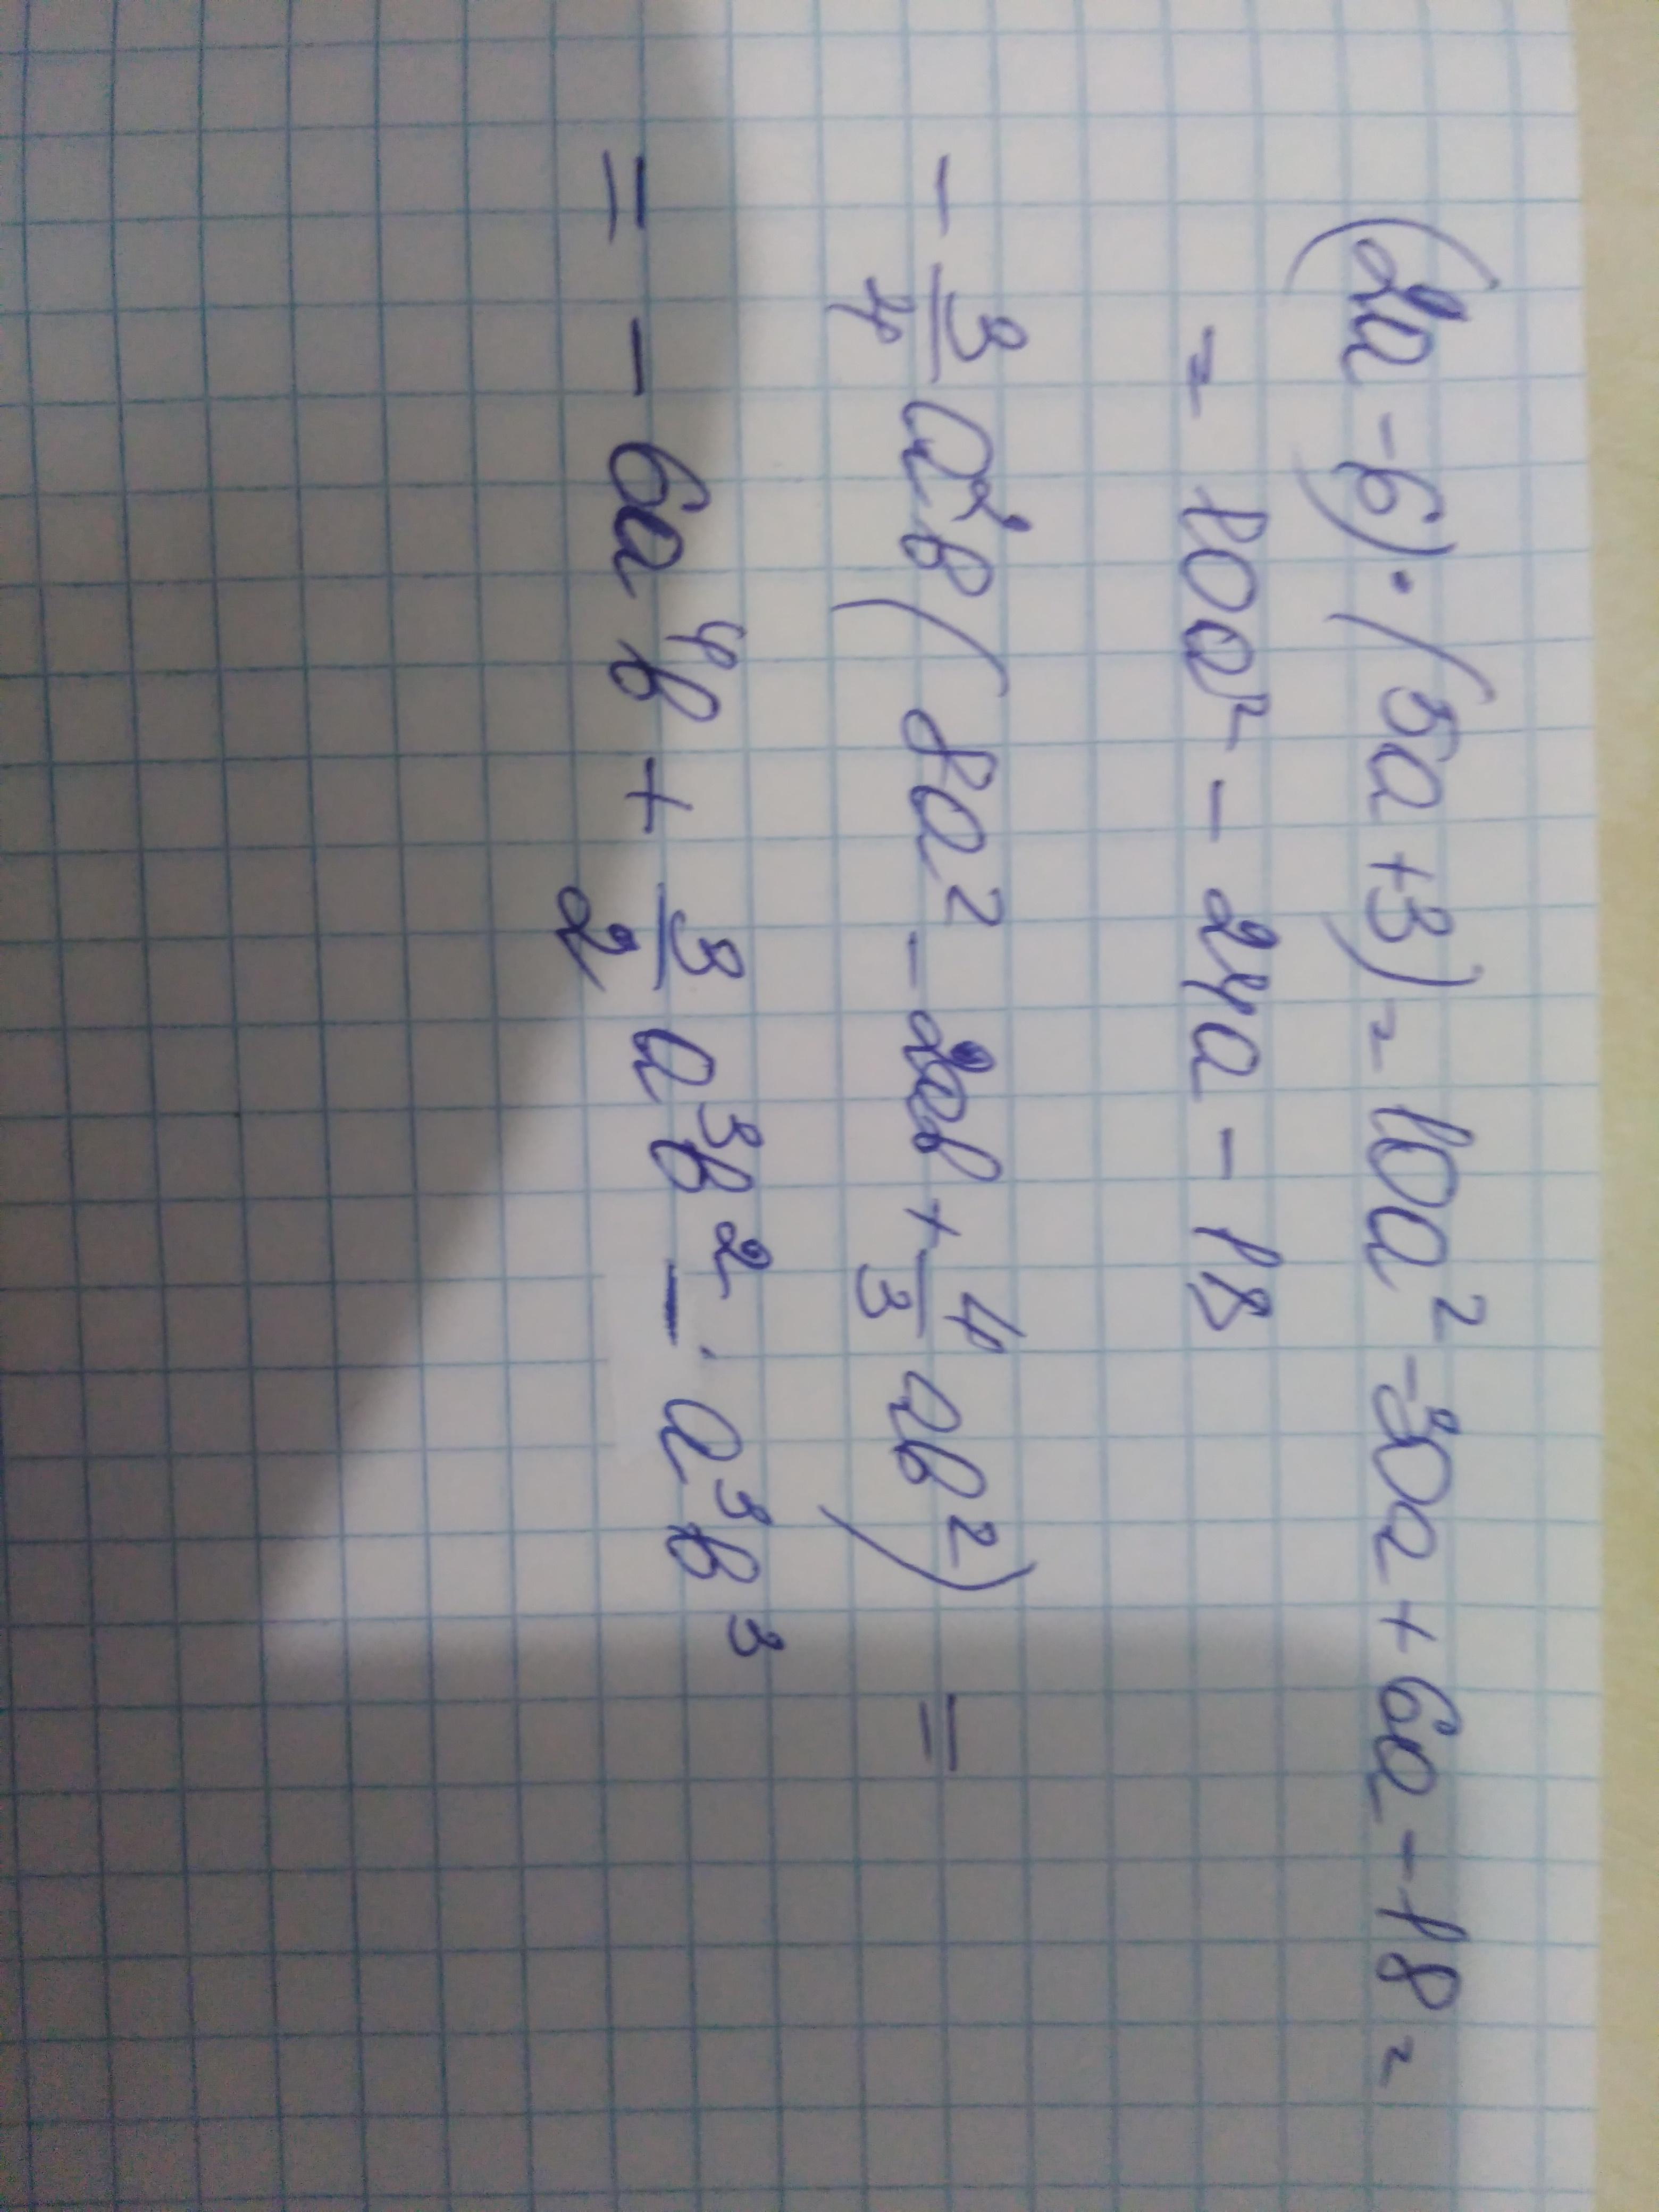 (2a - 6) · (5a + 3) = 10a² - 30a + 6a - 18 =
= 10a² - 24a - 18
- 3/4 a²b (8a² - 2ab + 4/3 ab²) =
= - 6a⁴b + 3/2 a³b² - a³b³